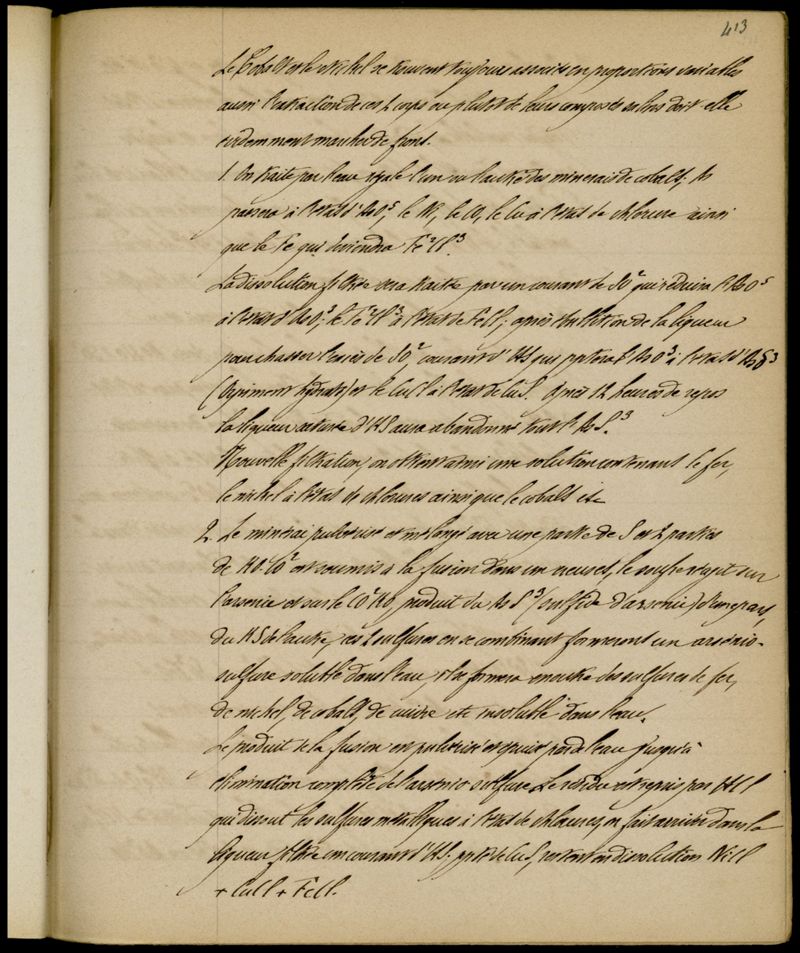 413
Le Cobalt et le Nickel se trouvent toujours associés en proportions variables
aussi l'extraction de ces 2 corps ou plutôt de leurs composés salins doit-elle
évidemment marcher de front.
1. On traite par l'eau régale l'un ou l'autre des minerais de cobalt, As
passera à l'état d'AsO⁵, le Ni, le Co, le Cu à l'état de chlorure ainsi
que le Fe qui deviendra Fe²Cl³.
La dissolution filtrée sera traitée par un courant de SO² qui réduira l'AsO⁵
à l'état d'AsO³, le Fe²Cl³ à l'état de FeCl; après ébullition de la liqueur
pour chasser l'excès de SO² courant d'HS qui pptera l'AsO³ à l'état d'AsS³
(Orpiment hydraté) et le CuCl à l'état de CuS. Après 12 heures de repos
la liqueur saturée d'HS aura abandonné tout l'AsS³.
Nouvelle filtration, on obtient ainsi une solution contenant le fer,
le nickel à l'état de chlorures ainsi que le cobalt etc
2. Le minerai pulvérisé est mélangé avec une partie de S et 2 parties
de KO.CO² et soumis à la fusion dans un creuset, le soufre réagit sur
l'arsenic et sur le CO²KO, produit du AsS³ (sulfide d'arsenic) d'une part,
du KS de l'autre, ces 2 sulfures en se combinant formeront un arsenio-
sulfure soluble dans l'eau, il se formera en outre des sulfures de fer,
de nickel, de cobalt, de cuivre etc insoluble dans l'eau.
Le produit de la fusion est pulvérisé et épuisé par de l'eau jusqu'à
élimination complète de l'arsenio sulfure. Le résidu est repris par HCl
qui dissout les sulfures métalliques à l'état de chlorures, on fait arriver dans la
liqueur filtrée un courant d'HS. ppté de CuS, restent en dissolution NiCl
+ CoCl + FeCl.